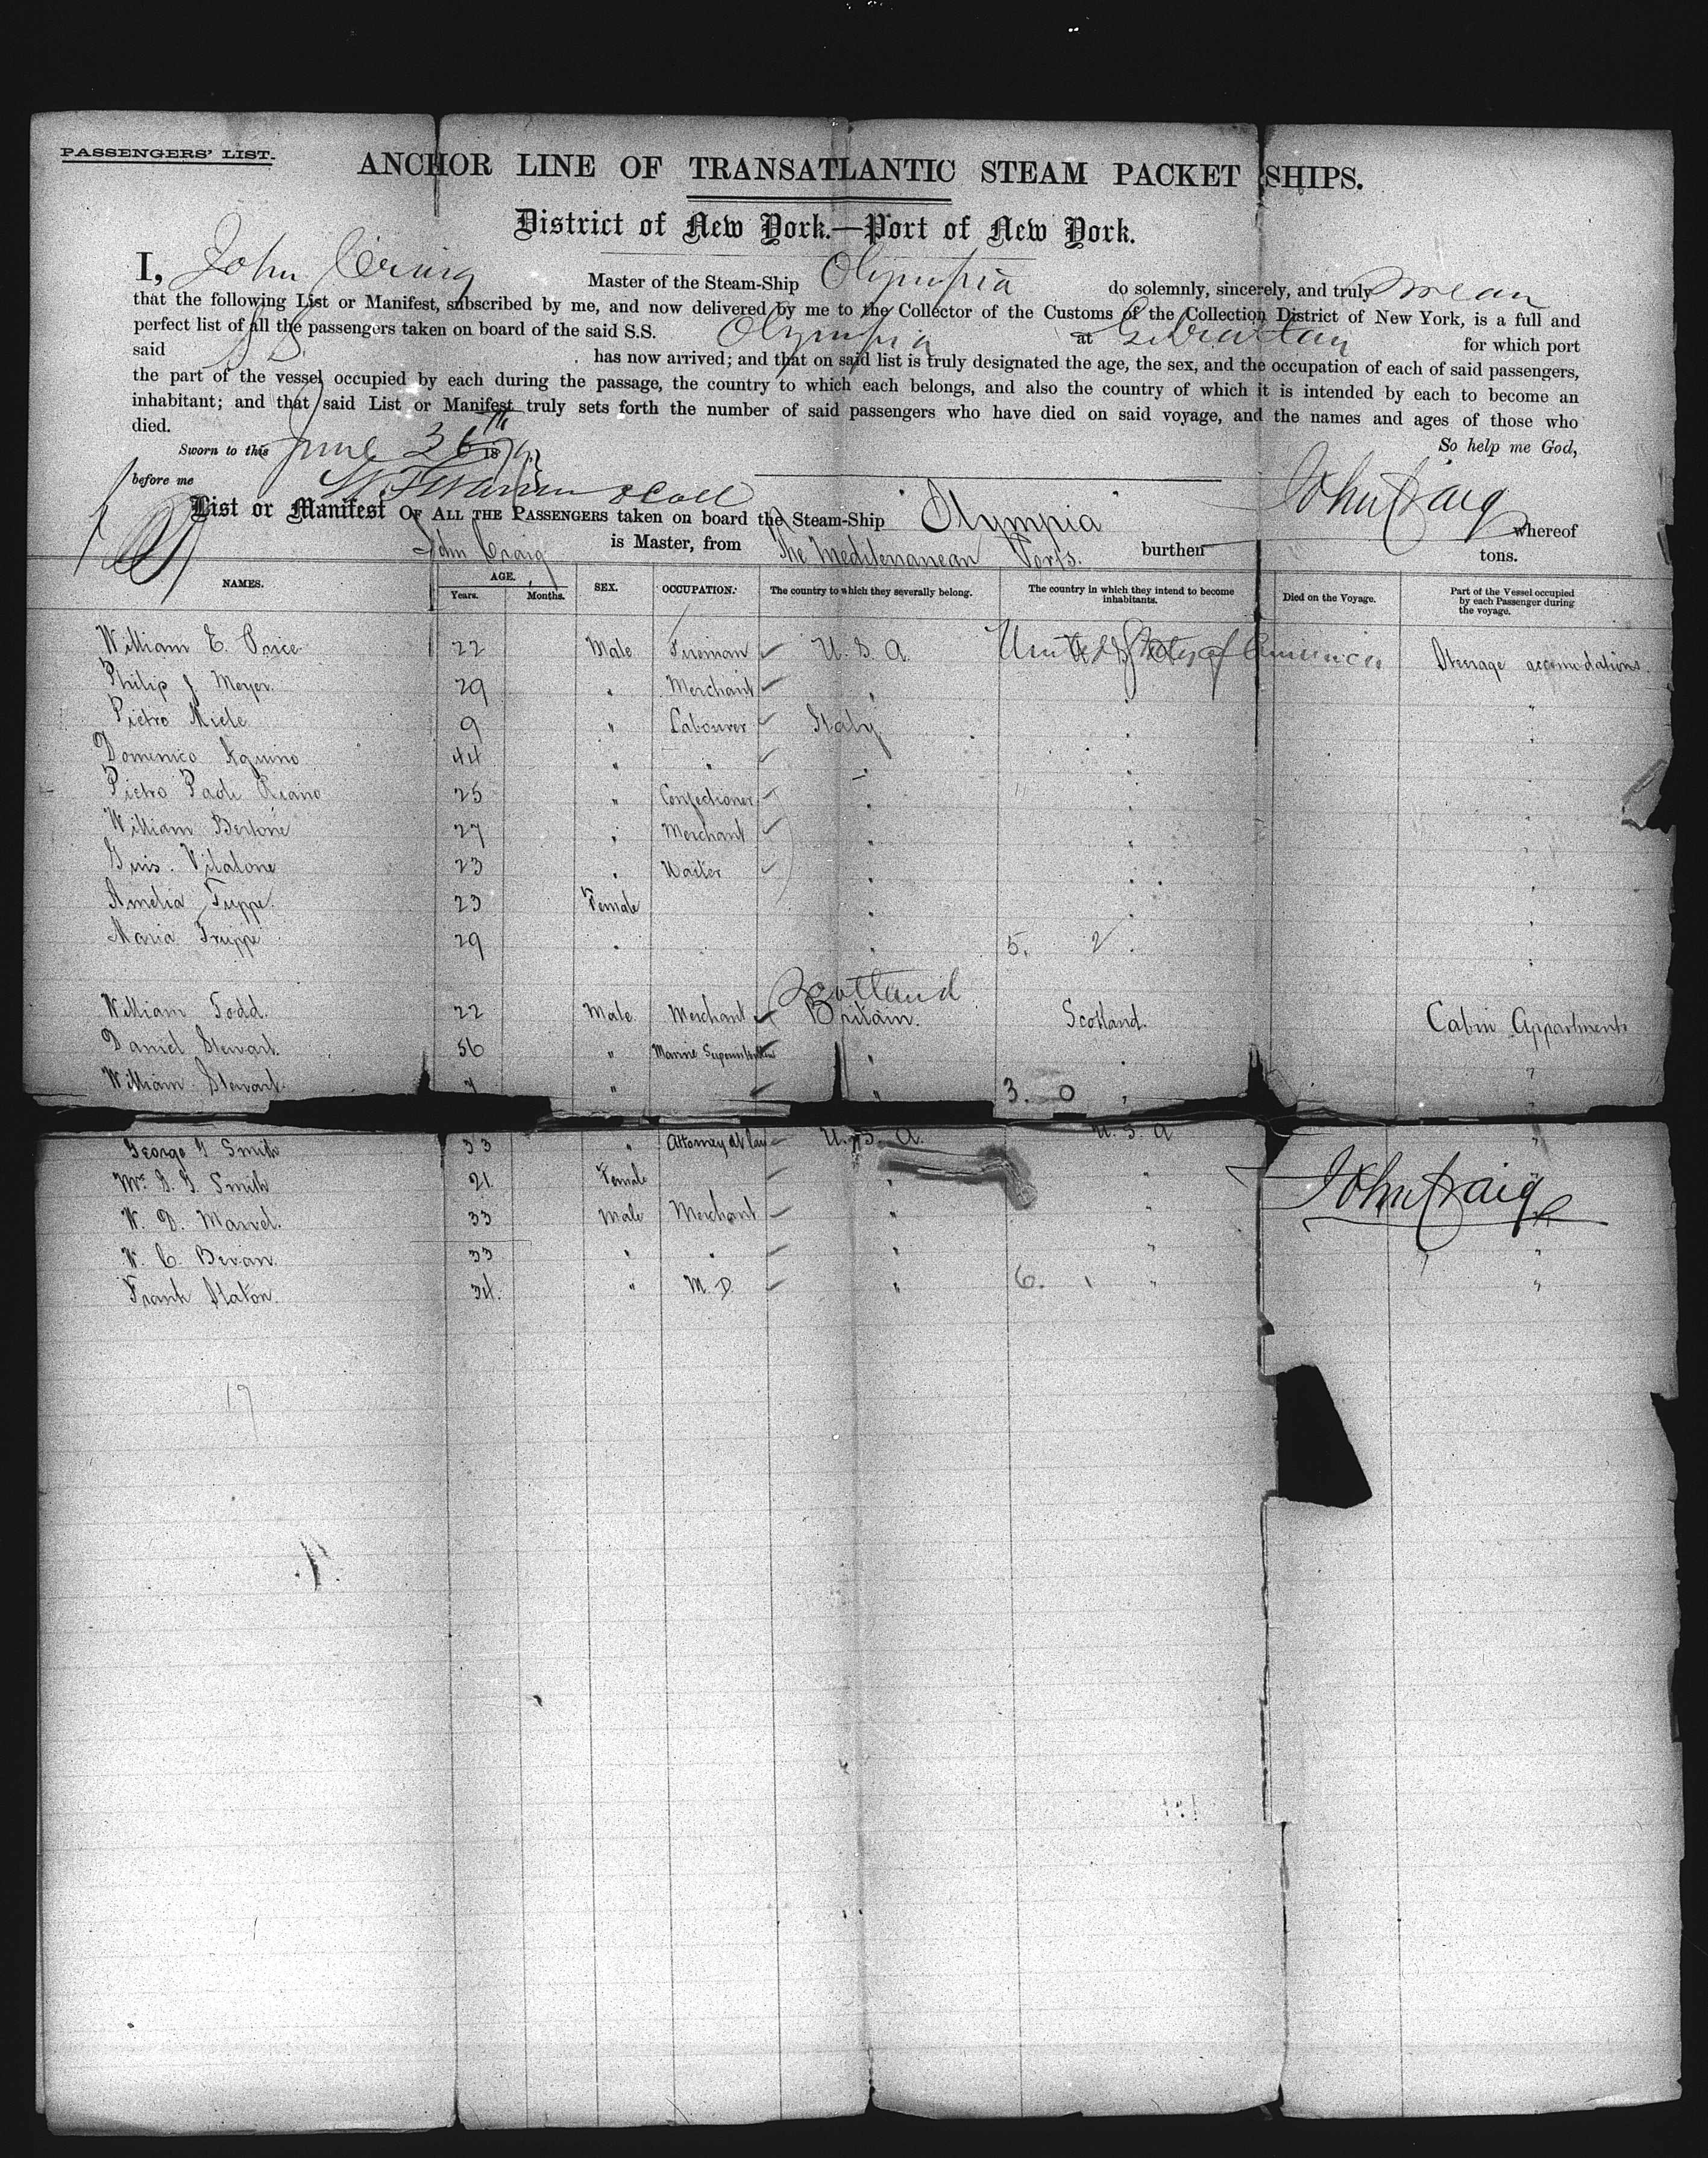 PASSENGERS' LIST.
ANCHOR LINE OF TRANSATLANTIC STEAM PACKET SHIPS.
District of New York.—Port of New York.
I, John Craig Master of the Steam-Ship Olympia do solemnly, sincerely, and truly swear
that the following List or Manifest, subscribed by me, and now delivered by me to the Collector of the Customs of the Collection District of New York, is a full and
perfect list of all the passengers taken on board of the said S.S. Olympia at Gibraltar for which port
said SS has now arrived; and that on said list is truly designated the age, the sex, and the occupation of each of said passengers,
the part of the vessel occupied by each during the passage, the country to which each belongs, and also the country of which it is intended by each to become an
inhabitant; and that said List or Manifest truly sets forth the number of said passengers who have died on said voyage, and the names and ages of those who
died.
So help me God,
Sworn to this June 26th 18
before me
John Craig
List or Manifest OF ALL THE PASSENGERS taken on board the Steam-Ship "Olympia" whereof
John Craig is Master, from The Mediterranean Ports. burthen tons.
NAMES. AGE. Years. Months. SEX. OCCUPATION. The country to which they severally belong. The country in which they intend to become inhabitants. Died on the Voyage. Part of the Vessel occupied by each Passenger during the voyage.
William E. Price 22 Male Fireman U.S.A. United States of America Steerage accomodations
Philip J Meyer. 29 " Merchant " " "
Pietro Miele 9 " Labourer Italy " "
Domenico Aquino 44 " " " " "
Pietro Paoli 25 " Confectioner " " "
William Bertone 27 " Merchant " " "
Guis. Vitalone 23 " Waiter " " "
Amelia Fuppe. 23 Female " " "
Maria Truppe 29 " " 5. 2 "
Scotland
William Todd. 22 Male Merchant Britain. Scotland. Cabin Appartments
Daniel Stewart. 56 " Marine " " "
William Stewart. 7 " " 3. 0 " "
George G Smith 33 " Attorney at Law U.S.A. U.S.A "
Mrs G. G. Smith 21 Female " "
John Craig
W. D. Marvel. 33 Male Merchant " "
W. C. Bevan. 33 " " " " "
Frank Slaton. 34. " M.D. " 6. 1 " "
17